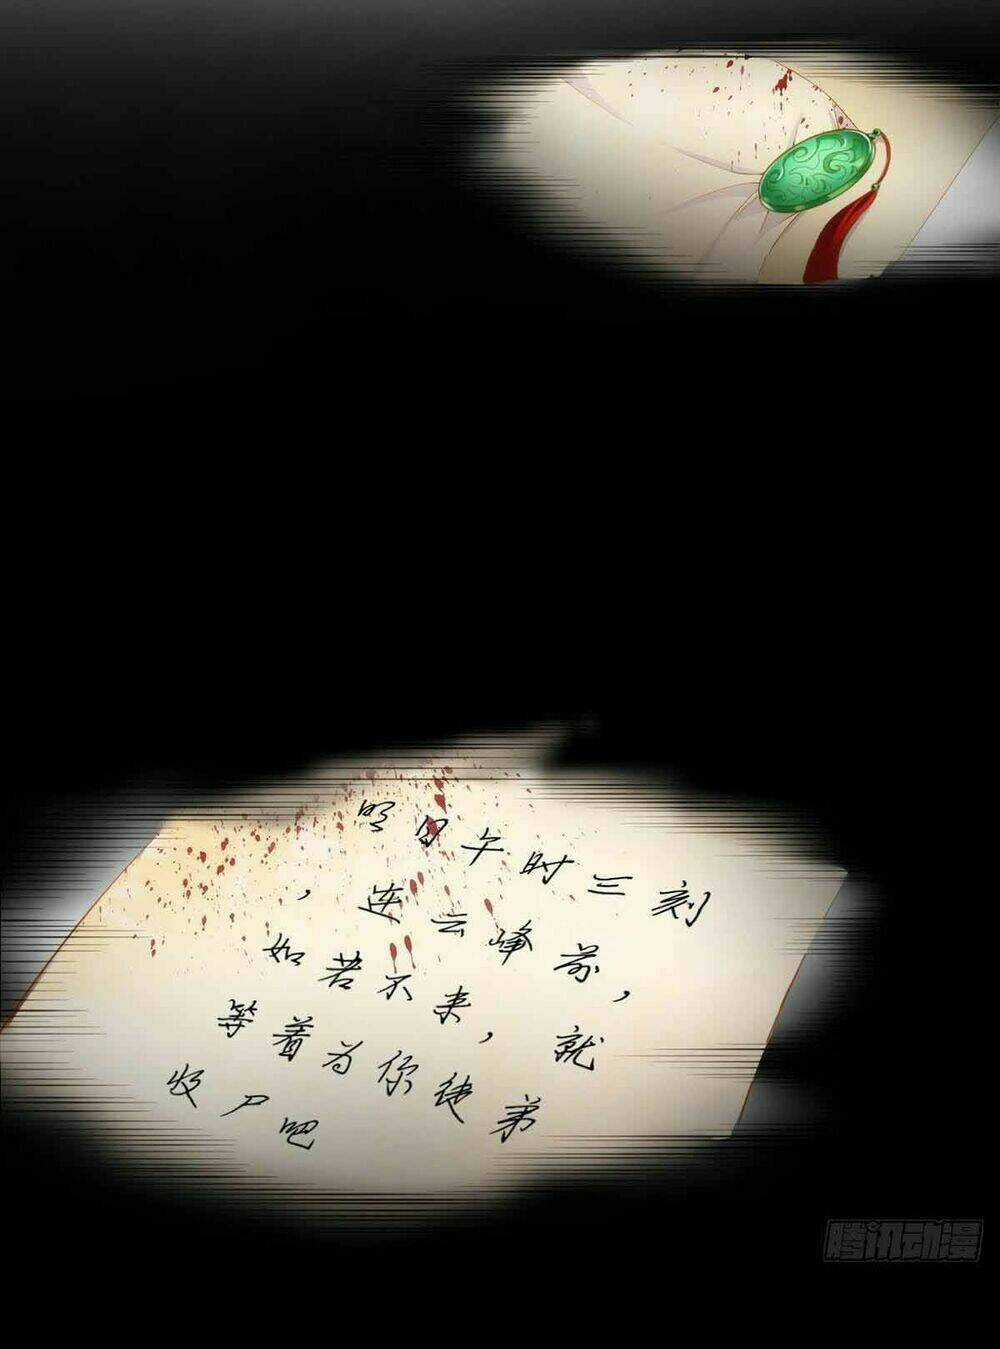 明日午时三刻
，连云峰前，
如若不来，就
等着为你徒弟
收尸吧
腾讯动漫